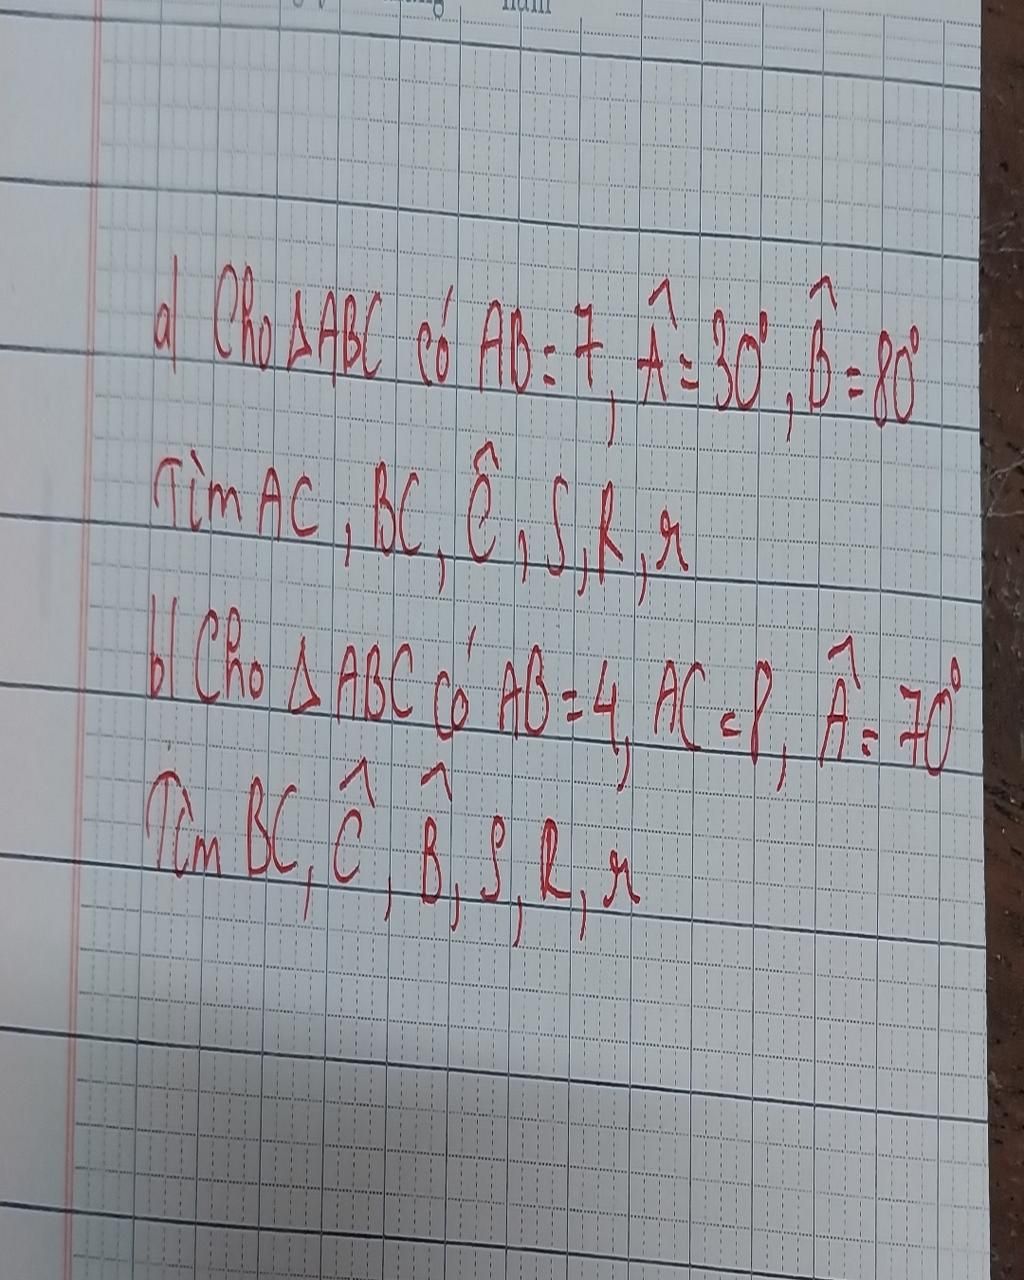 a) Cho ΔABC có AB = 7, Â = 30°, B̂ = 80°
Tìm AC, BC, Ĉ, S, R, r
b) Cho Δ ABC có AB = 4, AC = 8, Â = 70°
Tìm BC, Ĉ, B̂, S, R, r